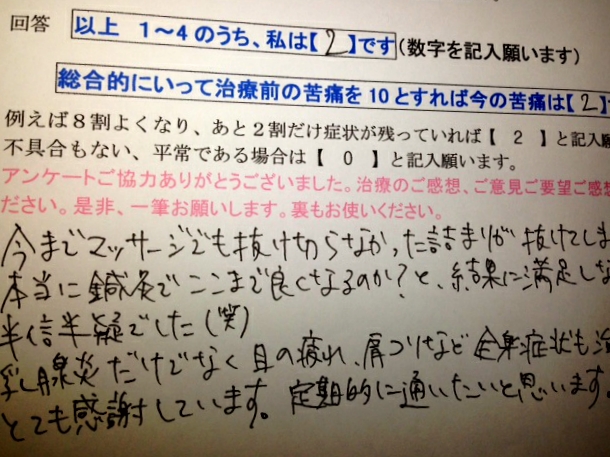 回答 以上 1〜4のうち、私は【 2 】です(数字を記入願います)
総合的にいって治療前の苦痛を10とすれば今の苦痛は【 2 】
例えば8割よくなり、あと2割だけ症状が残っていれば【 2 】と記入
不具合もない、平常である場合は【 0 】と記入願います。
アンケートご協力ありがとうございました。治療のご感想、ご意見ご要望ご感想
ださい。是非、一筆お願いします。裏もお使いください。
今までマッサージでも抜け切らなかった詰まりが抜けてしま
本当に鍼灸でここまで良くなるのか?と、結果に満足しな
半信半疑でした(笑)
乳腺炎だけでなく目の疲れ、肩コリなど全身症状も治
とても感謝しています。定期的に通いたいと思います。